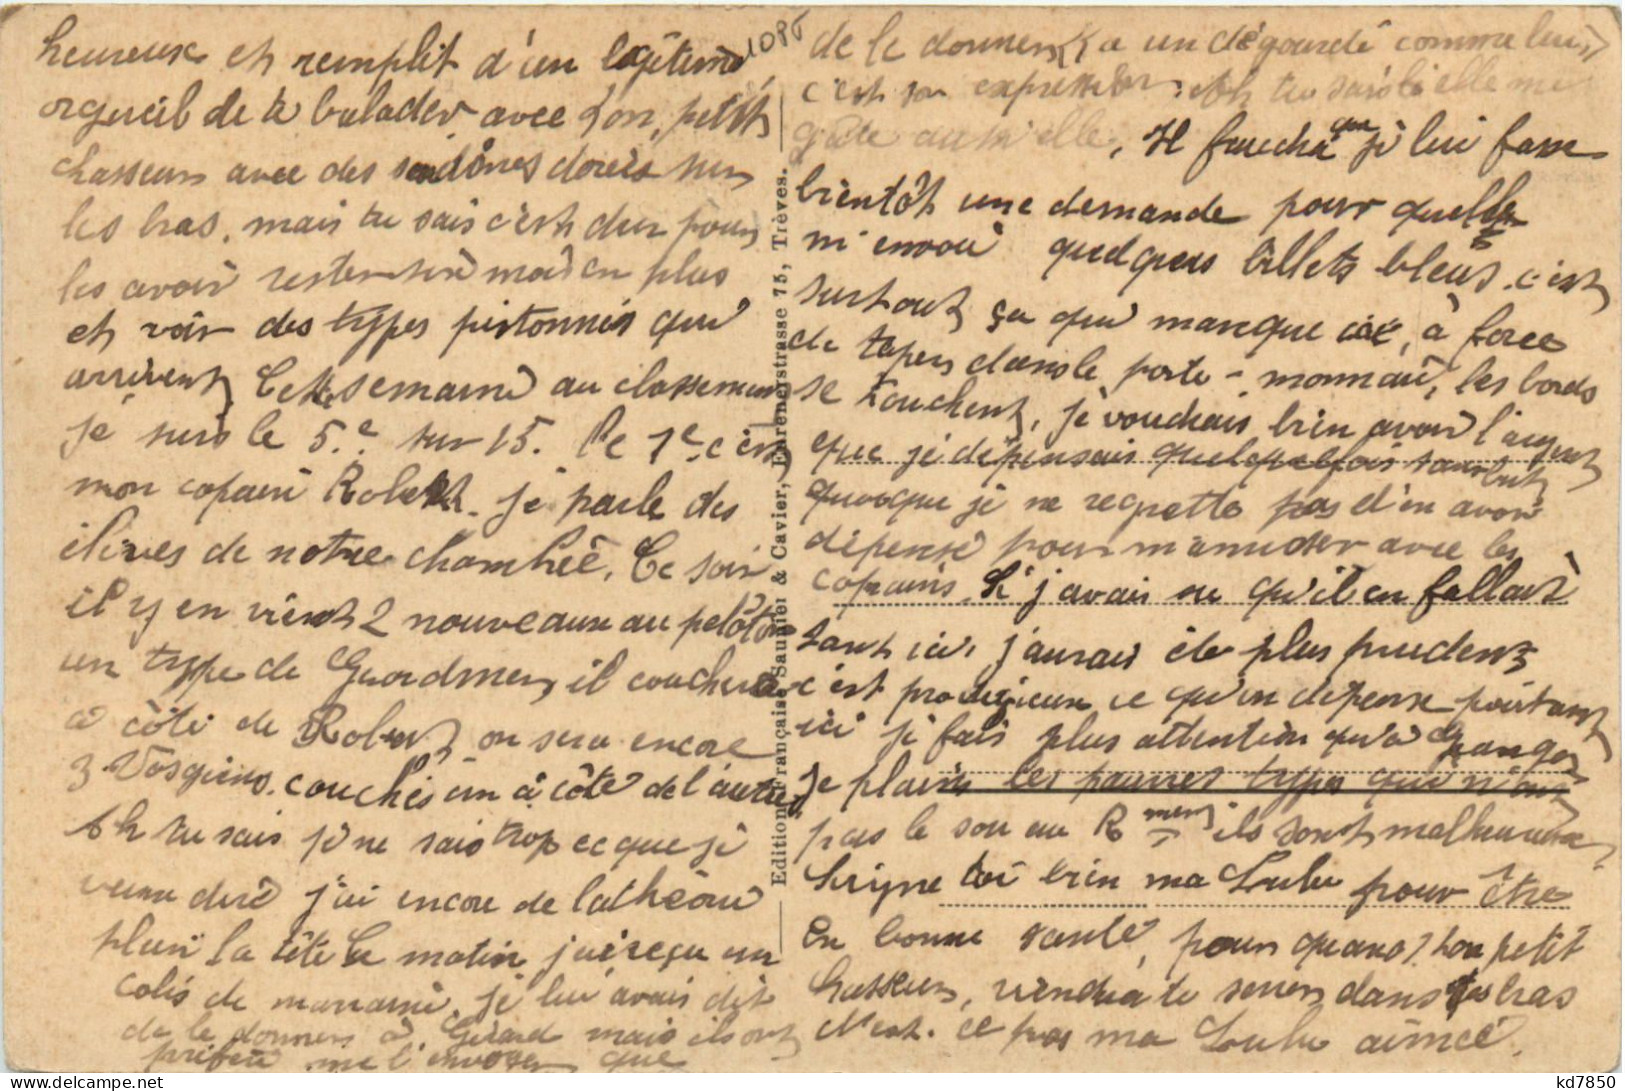 heureuse et remplit d'un légitime
orgueil de te balader avec ton petit
chasseur avec des sardines dorées sur
les bras, mais tu sais c'est dur pour
les avoir rester ici mois en plus
et voir des types pistonnés qui
arrivent. Cette semaine au classement
je suis le 5.e sur 15. Le 1e c'est
mon copain Robert. Je parle des
élèves de notre chambrée. Ce soir
il y en vient 2 nouveaux au peloton
un type de Gérardmer, il couchera
à côté de Robert, on sera encore
3 Vosgiens couchés un à côté de l'autre
Ah tu sais je ne sais trop ce que je
veux dire j'ai encore de la théorie
plein la tête ce matin, j'ai reçu un
colis de maman, je lui avais dit
de le donner à Gérard mais ils ont
préféré me l'envoyer que
1086
Edition Française Saunier & Cavier, Eurenerstrasse 75, Trèves.
de le donner "à un dégourdi comme lui"
c'est son expression. Ah tu sais elle me
gâte aussi elle. Il faudra que je lui fasse
bientôt une demande pour qu'elle
m'envoie quelques billets bleus. c'est
surtout ça qui manque ici, à force
de taper dans le porte-monnaie, les bords
se touchent, je voudrais bien avoir l'argent
que je dépensais quelquefois sans but
quoique je ne regrette pas d'en avoir
dépensé pour m'amuser avec les
copains. Si j'avais su qu'il en fallait
tant ici, j'aurais été plus prudent
c'est prodigieux ce qu'on dépense pourtant
ici je fais plus attention qu'à Granges
Je plains les pauvres types qui n'ont
pas le sou au Rment ils sont malheureux
Soigne toi bien ma Lulu pour être
en bonne santé, pour quand ton petit
chasseur, viendra te serrer dans ses bras
N'est-ce pas ma Lulu aimée.
kd7850